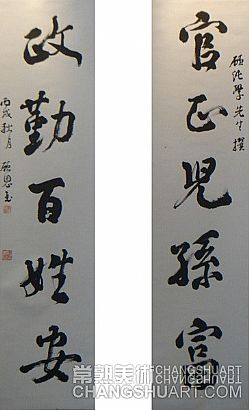 官正兒孫富
先生撰
政勤百姓安
丙戌秋月
常熟美術 CHANGSHUART
CHANGSHUART.COM